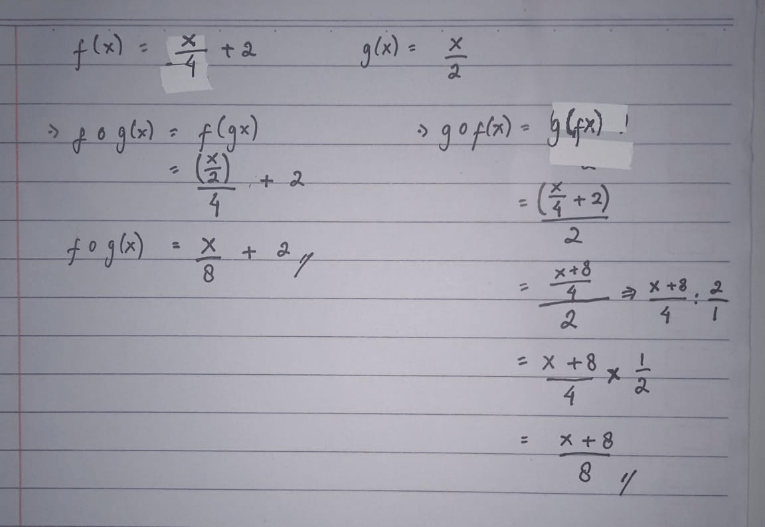 f(x) = x/4 + 2
g(x) = x/2
⇒ f o g(x) = f(gx)
= (x/2)/4 + 2
f o g(x) = x/8 + 2 //
⇒ g o f(x) = g(fx)
= (x/4 + 2)/2
= ((x+8)/4)/2 ⇒ (x+8)/4 : 2/1
= (x+8)/4 × 1/2
= (x+8)/8 //